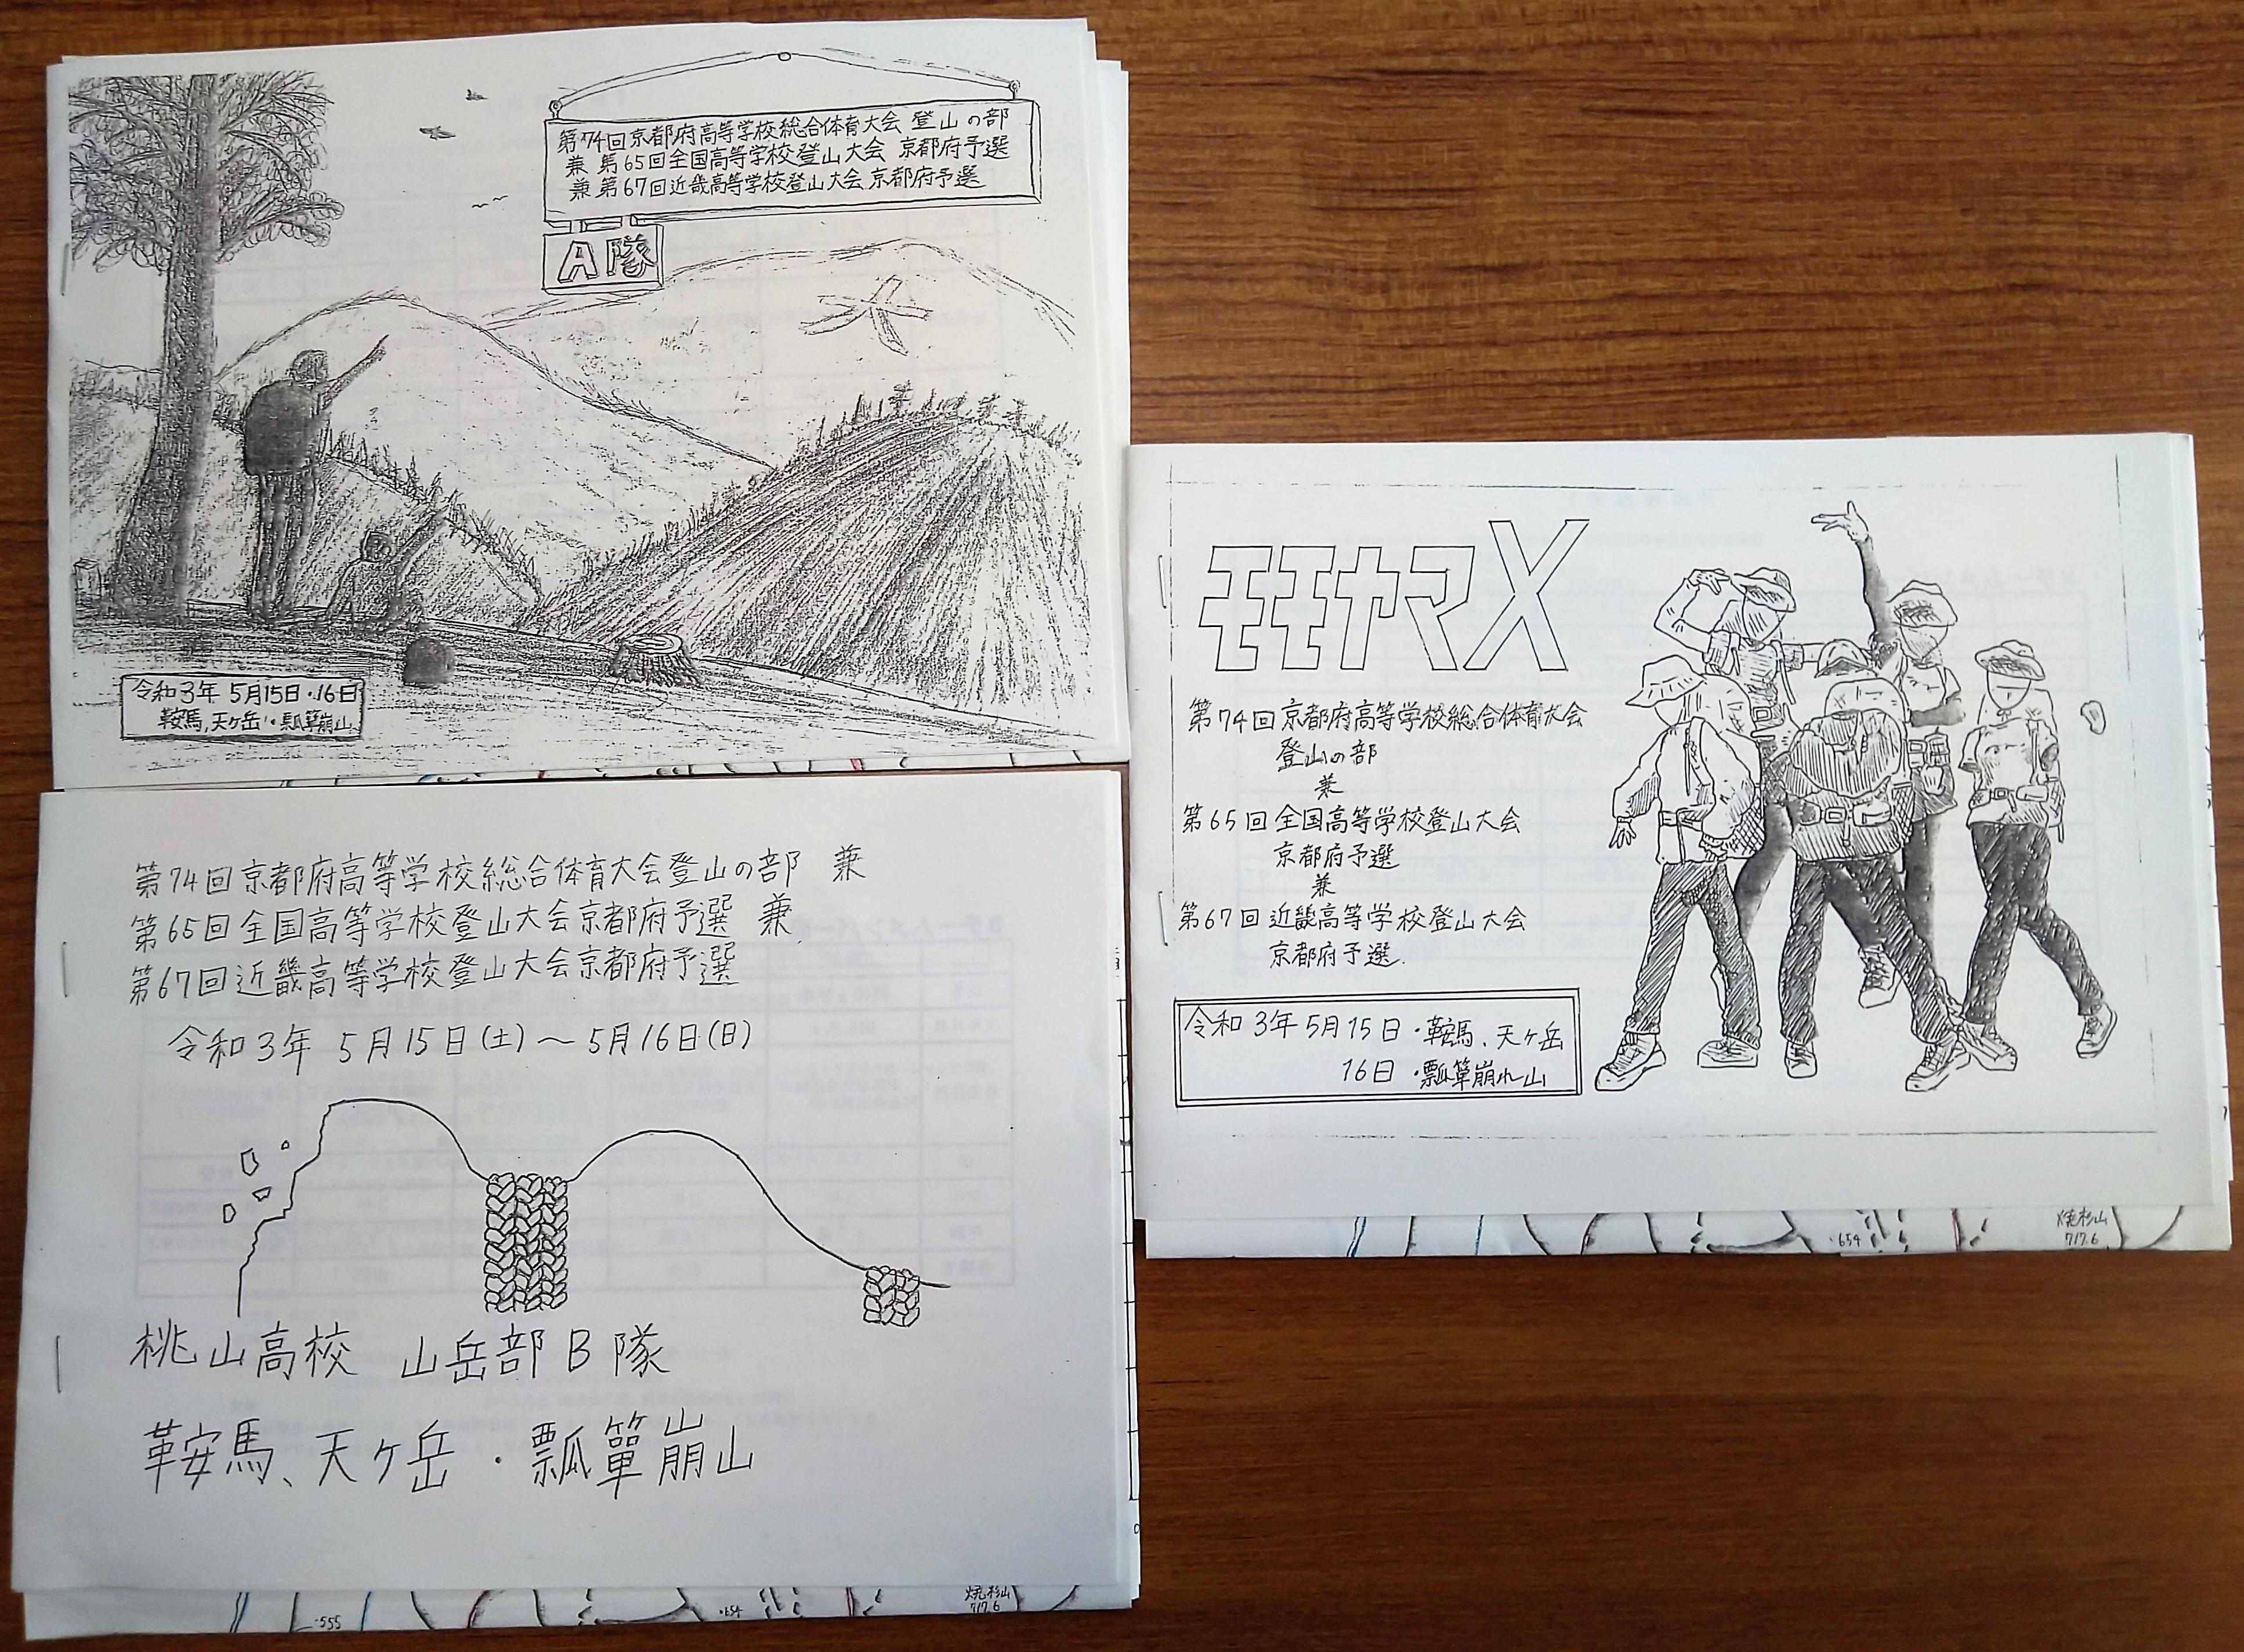 第74回京都府高等学校総合体育大会 登山の部
兼 第65回全国高等学校登山大会 京都府予選
兼 第67回近畿高等学校登山大会 京都府予選
A隊
令和3年 5月15日・16日
鞍馬、天ケ岳・瓢箪崩山
第74回京都府高等学校総合体育大会登山の部 兼
第65回全国高等学校登山大会京都府予選 兼
第67回近畿高等学校登山大会京都府予選
令和3年 5月15日(土)〜5月16日(日)
桃山高校 山岳部B隊
鞍馬、天ケ岳・瓢箪崩山
・555
・654
焼杉山
717.6
モモヤマX
第74回 京都府高等学校総合体育大会
登山の部
兼
第65回 全国高等学校登山大会
京都府予選
兼
第67回 近畿高等学校登山大会
京都府予選.
令和3年5月15日・鞍馬、天ケ岳
16日・瓢箪崩れ山
・654
焼杉山
717.6